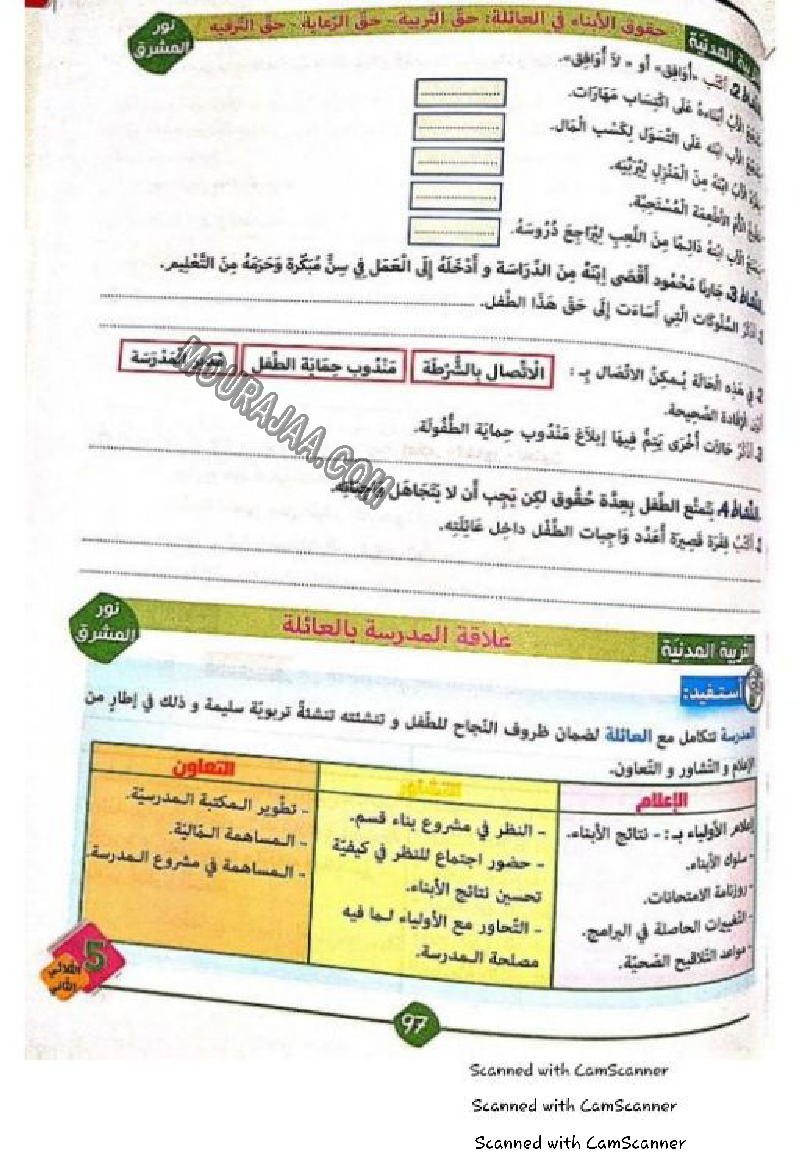 التربية المدنية
حقوق الأبناء في العائلة: حقّ التّربية - حقّ الرّعاية - حقّ التّرفيه
نور المشرق
2. أكتب «أُوَافِق» أو «لَا أُوَافِق».
الأب أبْنَاءَهُ عَلَى اكْتِسَاب مَهَارَات.
الأب ابْنه عَلَى التَّسَوّل لِكَسْب الْمَال.
الأب ابْنَهُ مِنَ الْمَنْزِل لِيُرَبِّيَه.
الأُمّ الأَطْعِمَة الْمُسَمِّنَة.
الأب ابْنَهُ دَائِمًا مِنَ اللَّعِب لِيُرَاجِعَ دُرُوسَهُ.
3. جَارنا مَحْمُود أَقْصَى اِبْنَهُ مِنَ الدِّرَاسَة و أَدْخَلَهُ إِلَى الْعَمَل فِي سِنٍّ مُبَكِّرة وَحَرَمَهُ مِنَ التَّعْلِيم.
1. أذْكُرُ السُّلُوكَات الَّتِي أَسَاءَت إِلَى حَقّ هَذَا الطِّفل.
2. فِي هَذِه الْحَالَة يُـمكِنُ الاتّصَال بِـ :
الْاتِّصال بِالشُّرطَة
مَنْدُوب حِمَايَة الطِّفل
مُدير الْمَدْرَسَة
الإفَادة الصَّحِيحة.
3. أَذْكُرُ حَالَات أُخْرَى يَتِمُّ فِيهَا إبلَاغ مَنْدُوب حِمايَة الطُّفُولَة.
4. يَتَمتَّع الطِّفل بِعِدَّة حُقُوق لكِن يَجِب أَن لا يَتَجَاهَل وَاجِبَاتِه.
1. أَكْتُبُ فِقْرَة قَصِيرَة أُعَدِّد وَاجِبات الطِّفْل دَاخِل عَائِلَتِه.
التربية المدنيّة
علاقة المدرسة بالعائلة
نور المشرق
أستفيد:
المدرسة تتكامل مع العائلة لضمان ظروف النّجاح للطّفل و تنشئته تنشئةً تربويّة سليمة و ذلك في إطار من
الإعلام و التّشاور و التّعاون.
الإعلام
إعلام الأولياء بـ : - نتائج الأبناء.
- سلوك الأبناء.
- روزنامة الامتحانات.
- التّغييرات الحاصلة في البرامج.
- مواعد التّلاقيح الصّحيّة.
التشاور
- النظر في مشروع بناء قسم.
- حضور اجتماع للنظر في كيفيّة
تحسين نتائج الأبناء.
- التّحاور مع الأولياء لـما فيه
مصلحة الـمدرسة.
التعاون
- تطّوير الـمكتبة الـمدرسيّة.
- الـمساهمة الـمّاليّة.
- الـمساهمة في مشروع الـمدرسة.
5
الثلاثي الثاني
97
MOURAJAA.COM
Scanned with CamScanner
Scanned with CamScanner
Scanned with CamScanner